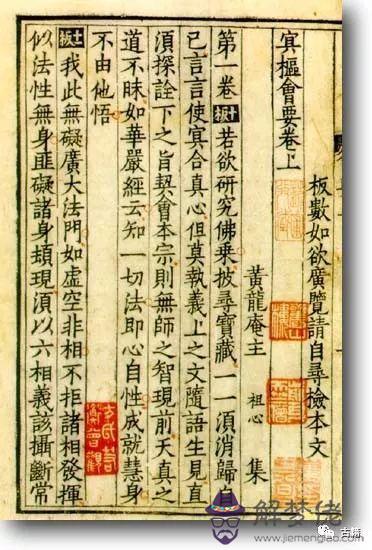 板數如欲廣覽請自尋撿本文
㝠樞會要卷上
黃龍庵主 祖心 集
第一卷 十板 若欲研究佛乘披尋寶藏一一須消歸自
己言言使㝠合真心但莫執義上之文隨語生見直
須探詮下之旨契會本宗則無師之智現前天真之
道不昧如華嚴經云知一切法即心自性成就慧身
不由他悟
十一板 我此無礙廣大法門如虛空非相不拒諸相發揮
似法性無身匪礙諸身頓現須以六相義該攝斷常
解夢佬
www.jiemeng8.com
古籍